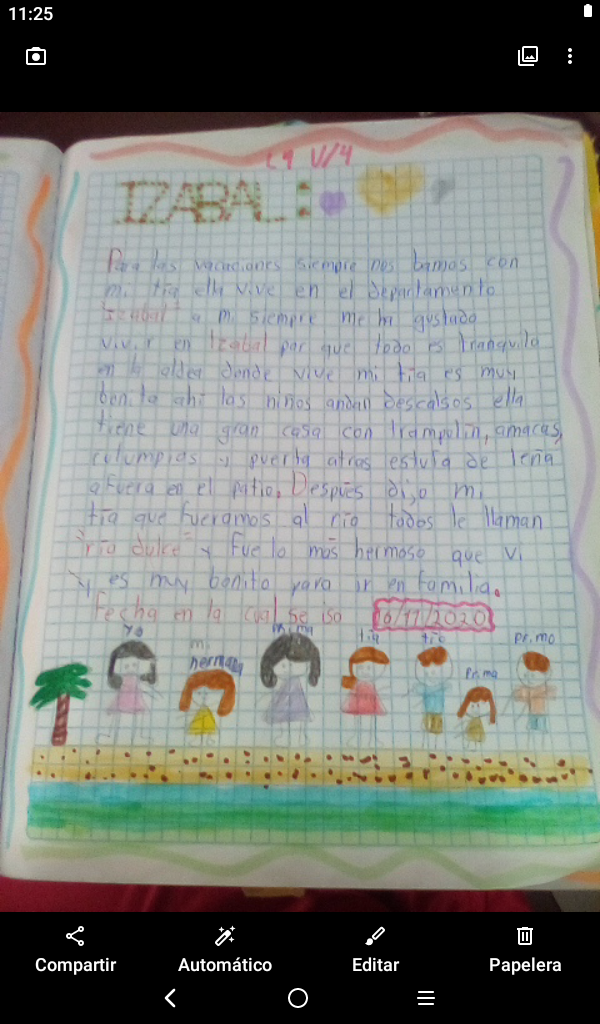 11:25
IZABAL:
Para las vacaciones siempre nos bamos con
mi tia ella vive en el departamento
"Izabal" a mi siempre me ha gustado
vivir en Izabal por que todo es tranquilo
en la aldea donde vive mi tia es muy
benito ahi las niños andan descalsos ella
tiene una gran casa con trampolin, amacas,
columpios y puerta atras estufa de leña
afuera en el patio. Después dijo mi
tia que fueramos al rio todos le llaman
"rio dulce" y fue lo mas hermoso que vi
y es muy bonito para ir en familia.
Fecha en la cual se iso 16/11/2020
yo
mi hermana
mima
tia
tio
prima
primo
Compartir
Automático
Editar
Papelera